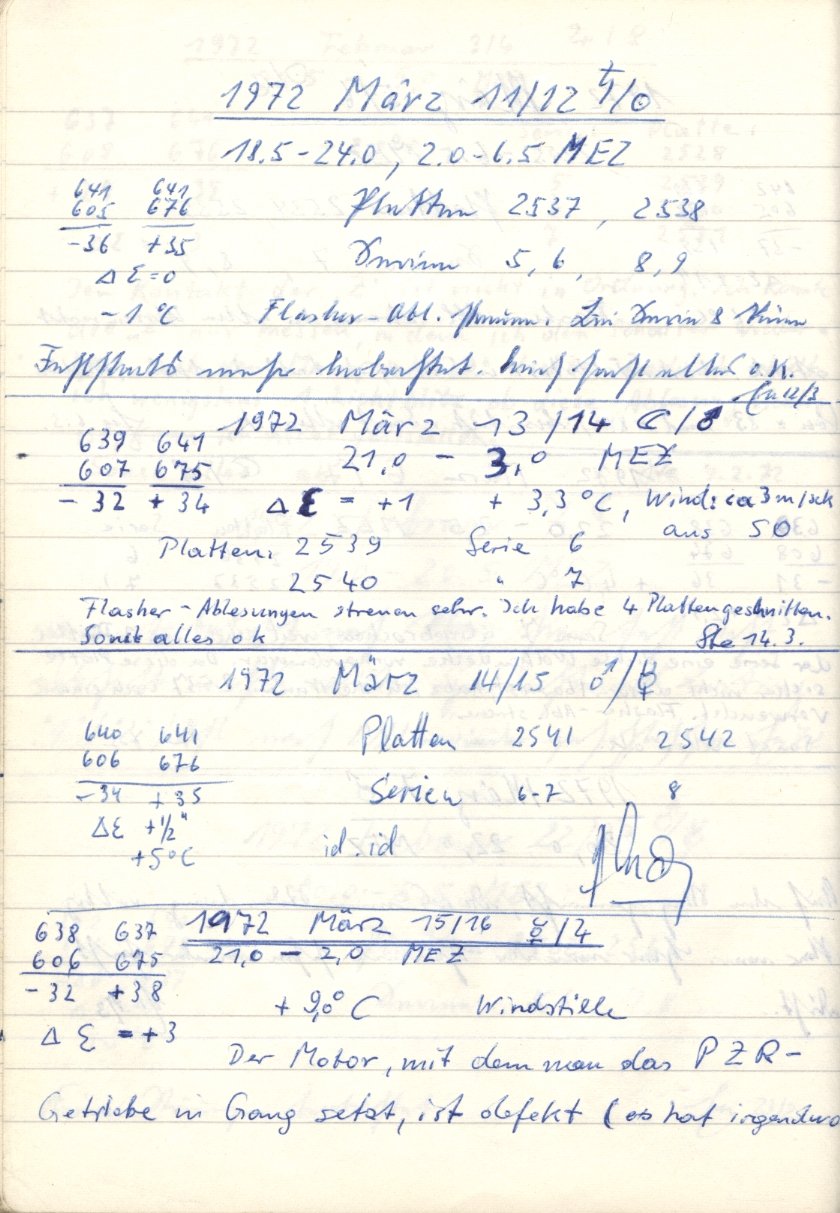 1972 März 11/12 ♄/☉
18.5-24.0, 2.0-6.5 MEZ
641 641
605 676
-36 +35
Δ Ɛ=0
Platten 2537, 2538
Serien 5, 6, 8, 9
-1 °C Flasher-Abl. streuen. Bei Serie 8
mehr beobachtet. sonst alles o.K.
12/3
1972 März 13/14 ☾/♂
639 641
607 675
-32 +34
21,0 - 3,0 MEZ
Δ Ɛ = +1 + 3,3°C, Wind: ca 3 m/sek
aus SO
Platten: 2539 Serie 6
2540 " 7
Flasher-Ablesungen streuen sehr. Ich habe 4 Platten geschnitten.
Sonst alles ok Ste 14.3.
1972 März 14/15 ♂/☿
640 641
606 676
-34 +35
ΔƐ +1/2"
+5°C
Platten 2541 2542
Serien 6-7 8
id. id
1972 März 15/16 ☿/♃
638 637
606 675
-32 +38
Δ Ɛ = +3
21,0 - 2,0 MEZ
+ 9,0° C Windstille
Der Motor, mit dem man das PZR-
Getriebe in Gang setzt, ist defekt (es hat irgendwo